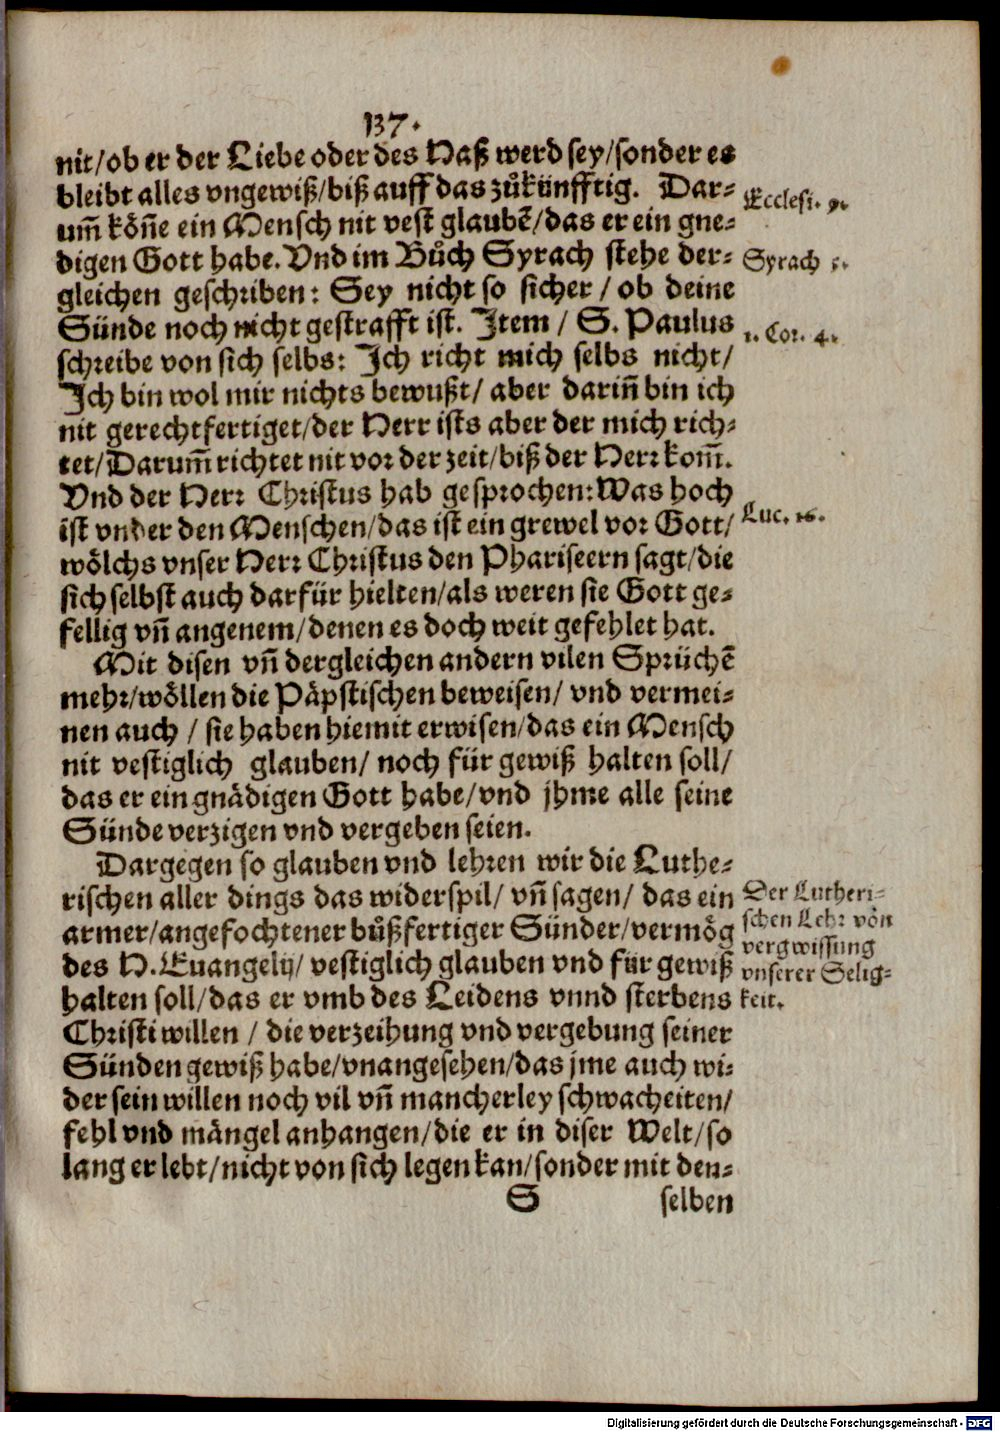 137.
nit/ob er der Liebe oder des Haß werd sey/sonder es
bleibt alles vngewiß/biß auff das zůkünfftig. Dar-
um̃ kön̄e ein Mensch nit vest glaubē/das er ein gne-
digen Gott habe. Vnd im Bůch Syrach stehe der-
gleichen geschriben: Sey nicht so sicher / ob deine
Sünde noch nicht gestrafft ist. Item / S. Paulus
schreibe von sich selbs: Ich richt mich selbs nicht/
Ich bin wol mir nichts bewußt/ aber darin̄ bin ich
nit gerechtfertiget/der Herr ists aber der mich rich-
tet/Darum̃ richtet nit vor der zeit/biß der Herr kom̃.
Vnd der Herr Christus hab gesprochen: Was hoch
ist vnder den Menschen/das ist ein grewel vor Gott/
wölchs vnser Herr Christus den Phariseern sagt/die
sich selbst auch darfür hielten/als weren sie Gott ge-
fellig vn̄ angenem/denen es doch weit gefehlet hat.
Mit disen vn̄ dergleichen andern vilen Sprüchē
mehr/wöllen die Päpstischen beweisen/ vnd vermei-
nen auch / sie haben hiemit erwisen/das ein Mensch
nit vestiglich glauben/ noch für gewiß halten soll/
das er ein gnädigen Gott habe/vnd jhme alle seine
Sünde verzigen vnd vergeben seien.
Dargegen so glauben vnd lehren wir die Luthe-
rischen aller dings das widerspil/ vn̄ sagen/ das ein
armer/angefochtener bůßfertiger Sünder/vermög
des H. Euangelij/ vestiglich glauben vnd für gewiß
halten soll/das er vmb des Leidens vnnd sterbens
Christi willen / die verzeihung vnd vergebung seiner
Sünden gewiß habe/vnangesehen/das jme auch wi-
der sein willen noch vil vn̄ mancherley schwacheiten/
fehl vnd mängel anhangen/die er in diser Welt/so
lang er lebt/nicht von sich legen kan/sonder mit den-
S selben
Ecclesi. 9.
Syrach 5.
1. Cor. 4.
Luc. 16.
Der Lutheri-
schen Lehr von
vergwissung
vnserer Selig-
keit.
Digitalisierung gefördert durch die Deutsche Forschungsgemeinschaft - DFG